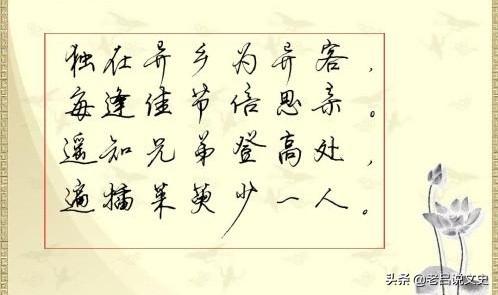 独在异乡为异客，
每逢佳节倍思亲。
遥知兄弟登高处，
遍插茱萸少一人。
头条 @老吕说文史